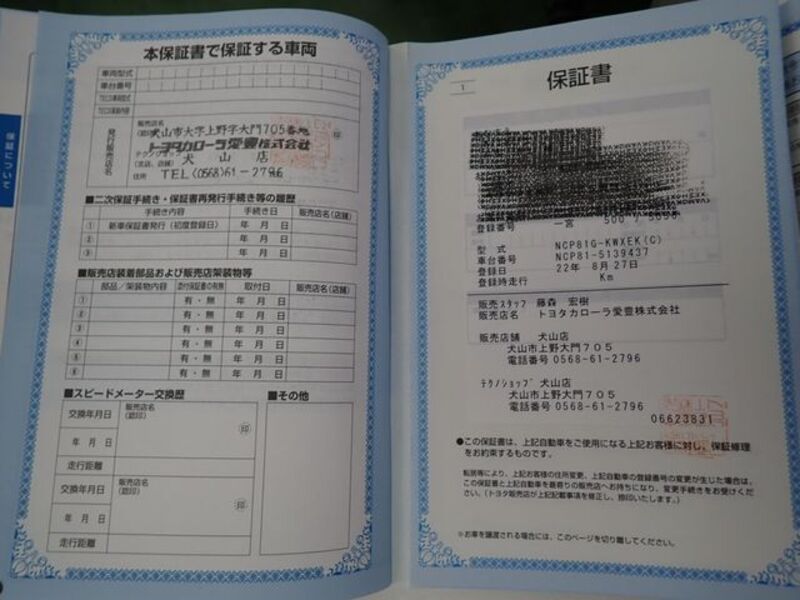 保証について
本保証書で保証する車両
車両型式
車台番号
発行販売店名
販売店名
犬山市大字上野字大門705番地
トヨタカローラ愛豊株式会社
テクノショップ
犬山店
住所
TEL(0568)61-2796
印
■二次保証手続き・保証書再発行手続き等の履歴
手続き内容 手続き日 販売店名(店舗)
① 新車保証書発行(初度登録日) 年 月 日
② 年 月 日
③ 年 月 日
■販売店装着部品および販売店架装物等
部品/架装物内容 添付保証書の有無 取付日 販売店名(店舗)
① 有・無 年 月 日
② 有・無 年 月 日
③ 有・無 年 月 日
④ 有・無 年 月 日
⑤ 有・無 年 月 日
⑥ 有・無 年 月 日
■スピードメーター交換歴
交換年月日 販売店名(認印)
年 月 日 印
走行距離
交換年月日 販売店名(認印)
年 月 日 印
走行距離
■その他
1
保証書
登録番号 一宮 500
型式 NCP81G-KWXEK(C)
車台番号 NCP81-5139437
登録日 22年 8月27日
登録時走行 Km
販売スタッフ 藤森 宏樹
販売店名 トヨタカローラ愛豊株式会社
販売店舗 犬山店
犬山市上野大門705
電話番号 0568-61-2796
テクノショップ 犬山店
犬山市上野大門705
電話番号 0568-61-2796
06623831
●この保証書は、上記自動車をご使用になる上記お客様に対し、保証修理
をお約束するものです。
転居等により、上記お客様の住所変更、上記自動車の登録番号の変更が生じた場合は、
この保証書と上記自動車を最寄りの販売店へお持ちになり、変更手続きをお受けくだ
さい。(トヨタ販売店が上記記載事項を修正し、捺印いたします。)
※お車を譲渡される場合には、このページを切り離してください。